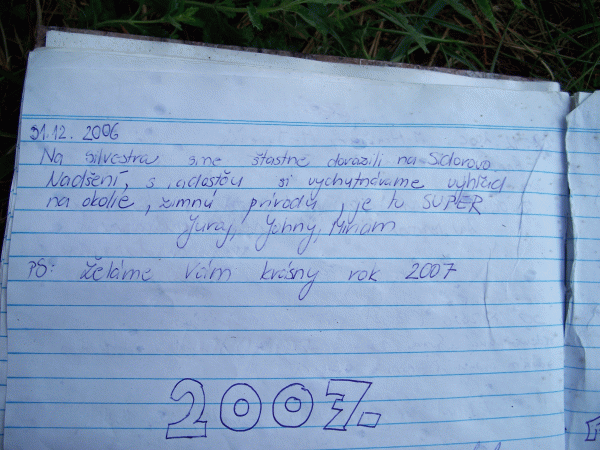 31.12. 2006
Na silvestra sme šťastne dorazili na Sidorovo
Nadšení, s radosťou si vychutnávame výhľad
na okolie, zimnú prírodu, je tu SUPER
Juraj, Johny, Miriam
PS: Želáme Vám krásny rok 2007
2007.